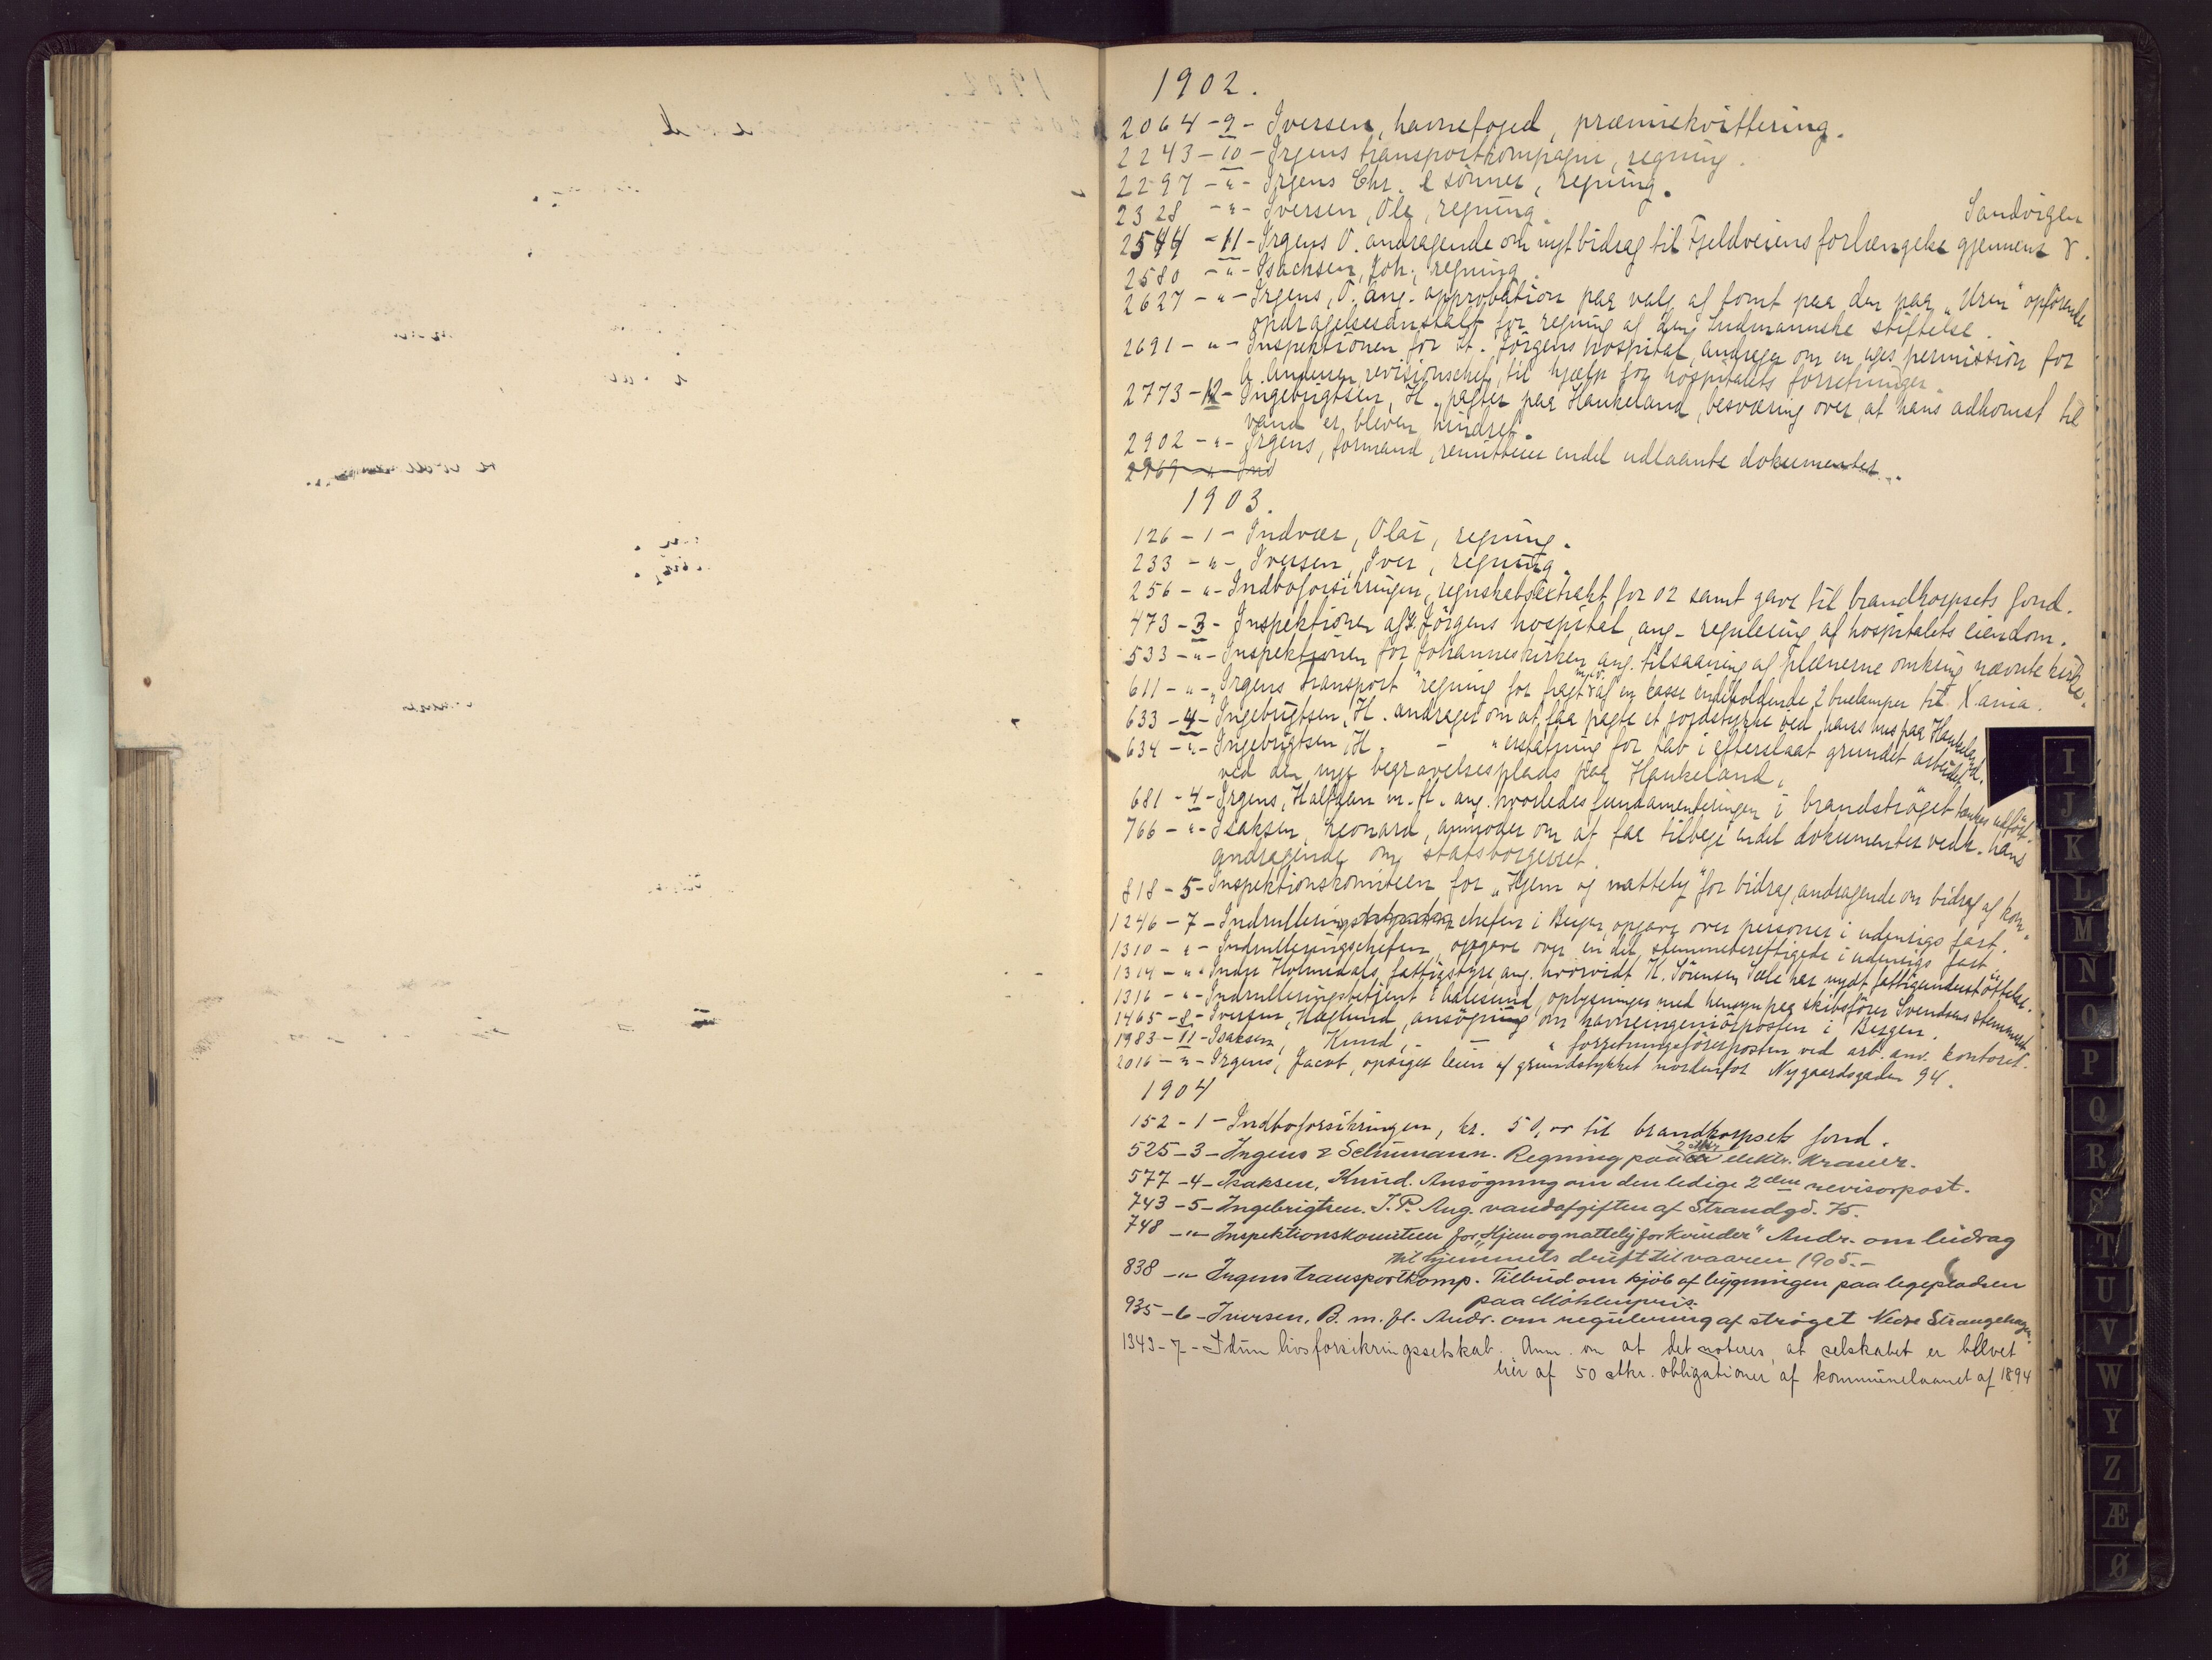 1902.
2064 - 9 - Iversen, havnefoged, præmiekvittering.
2243 - 10 - Irgens transportkompagni, regning.
2297 - " - Irgens Chr. & sønner, regning.
2328 - " - Iversen, Ole, regning.
Sandvigen
2544 - 11 - Irgens O. andragende om nyt bidrag til Fjeldveiens forlængelse gjennem
2580 - " - Isachsen, Joh., regning.
2627 - " - Irgens, O. ang. approbation paa valg af tomt paa den paa "Uren" opførende
opdragelsesanstalt for regning af den stiftelse.
2691 - " - Inspektionen for St. Jörgens hospital, andrager om en uges permission for
revisionschef, til hjælp for hospitalets forretninger.
2773 - 12 - Ingebrigtsen, H. pagter paa Haukeland, besværing over, at hans adkomst til
vand er bleven hindret.
2902 - " - Irgens, formand, remitterer endel udlaante dokumenter.
2969 - " - Ind
1903.
126 - 1 - Indvær, Olai, regning.
233 - " - Iversen, Iver, regning.
256 - " - Indboforsikringen, regnskabsextrakt for 02 samt gave til brandkorpsets fond.
473 - 3 - Inspektionen af St. Jörgens hospital, ang. regulering af hospitalets eiendom.
533 - " - Inspektionen for Johanneskirken ang. tilsaaning af plænerne omkring nævnte kirke.
611 - " - "Irgens transport" regning for fragt af en kasse indeholdende 2 buelamper til Xania.
633 - 4 - Ingebrigtsen, H. andrager om at faa pagte et jordstykke ved hans hus paa Haukeland.
634 - " - Ingebrigtsen, H. - " erstatning for tab i efterslaat grundet arbeidet
ved den nye begravelsesplads paa Haukeland.
681 - 4 - Irgens, Halfdan m. fl. ang. hvorledes fundamenteringen i brandströget tænkes udført.
766 - " - Isaksen, Leonard, anmoder om at faa tilbage endel dokumenter vedk. hans
andragende om statsborgerret.
818 - 5 - Inspektionskomiteen for "Hjem og nattely" for bidrag, andragende om bidrag af kom.
1246 - 7 - Indrullerings chefen i Bergen, opgave over personer i udenrigs fart.
1310 - " - Indrulleringschefen, opgave over en del stemmeberettigede i udenrigs fart.
1314 - " - Indre Holmedals fattigstyre, ang. hvorvidt K. Sörensen Sæle har nydt fattigunderstöttelse.
1316 - " - Indrulleringsbetjent i Aalesund, oplysninger med hensyn paa skibsfører Svendsens stemmeret.
1465 - 8 - Iversen, Haglund, ansögning om havneingeniörposten i Bergen.
1983 - 11 - Isaksen, Knud, - — " forretningsförerposten ved arb. anv. kontoret.
2016 - " - Irgens, Jacob, opsiger leien af grundstykket nordenfor Nygaardsgaden 94.
1904
152 - 1 - Indboforsikringen, kr. 50,00 til brandkorpsets fond.
525 - 3 - Irgens & Schumann. Regning paa 2 stkr elektr. Kraner.
577 - 4 - Isaksen, Knud. Ansögning om den ledige 2den revisorpost.
743 - 5 - Ingebrigtsen. I. P. Ang. vandafgiften af Strandgd. 75.
748 - " - Inspektionskomiteen for "Hjem og nattely for kvinder" Andr. om bidrag
til hjemmets drift til vaaren 1905. -
838 - " - Irgens transportkomp. Tilbud om kjöb af bygningen paa legepladsen
paa Möhlenpris.
935 - 6 - Iversen, B. m. fl. Andr. om regulering af ströget Nedre Strangehagen.
1343 - 7 - Idun livsforsikringsselskab. Anm. om at det noteres, at selskabet er blevet
eier af 50 stkr. obligationer af kommunelaanet af 1894
I
J
K
L
M
N
O
P
Q
R
S
T
U
V
W
Y
Z
Æ
Ø